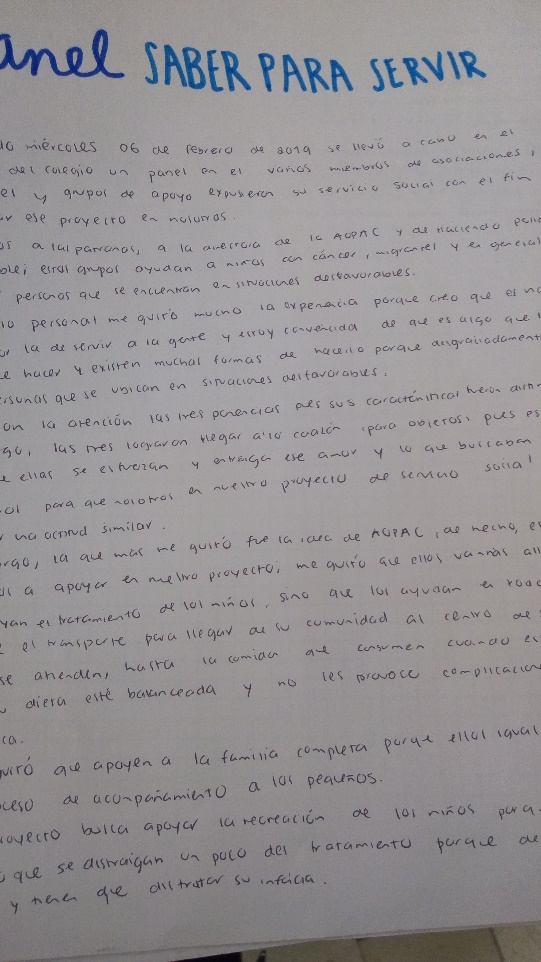 anel SABER PARA SERVIR
miércoles 06 de febrero de 2019 se llevó a cabo en el
del colegio un panel en el varios miembros de asociaciones,
y grupos de apoyo expusieron su servicio social con el fin
ese proyecto en nosotros.
a la de AOPAC y de Haciendo
esros grupos ayudan a niños con cáncer, migrantes y en general
personas que se encuentran en situaciones desfavorables.
personal me gustó mucho la experiencia porque creo que es
la de servir a la gente y estoy convencida de que es algo que
hacer y existen muchas formas de hacerlo porque desgraciadament
se ubican en situaciones desfavorables.
la atención las tres ponencias pues sus características fueron
las tres lograron llegar a lo para objetivos, pues
ellas se esfuerzan y entrega ese amor y lo que buscaban
para que nosotros en nuestro proyecto de servicio social
una actitud similar.
la que más me gustó fue la idea de AOPAC, de hecho,
a apoyar en nuestro proyecto; me gustó que ellos
el tratamiento de los niños, sino que los ayudan en
el transporte para llegar de su comunidad al centro de
se atienden, hasta la comida que consumen cuando
diera esté balanceada y no les provoce
que apoyen a la familia completa porque ellos igual
de acompañamiento a los pequeños.
busca apoyar la recreación de los niños para
que se distraigan un poco del tratamiento porque
y tienen que disfrutar su infacia.